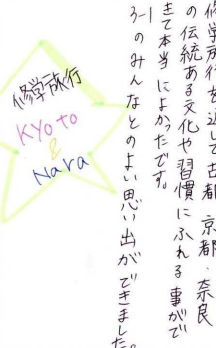 修学旅行を通じて古都 京都・奈良
の伝統ある文化や習慣にふれる事がで
きて本当によかったです。
3-1のみんなとのよい思い出ができました。
修学旅行
KYoto
&
Nara